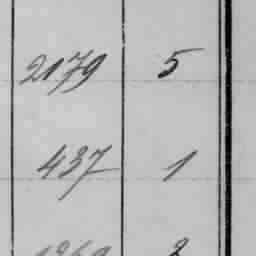 2179 5
437 1